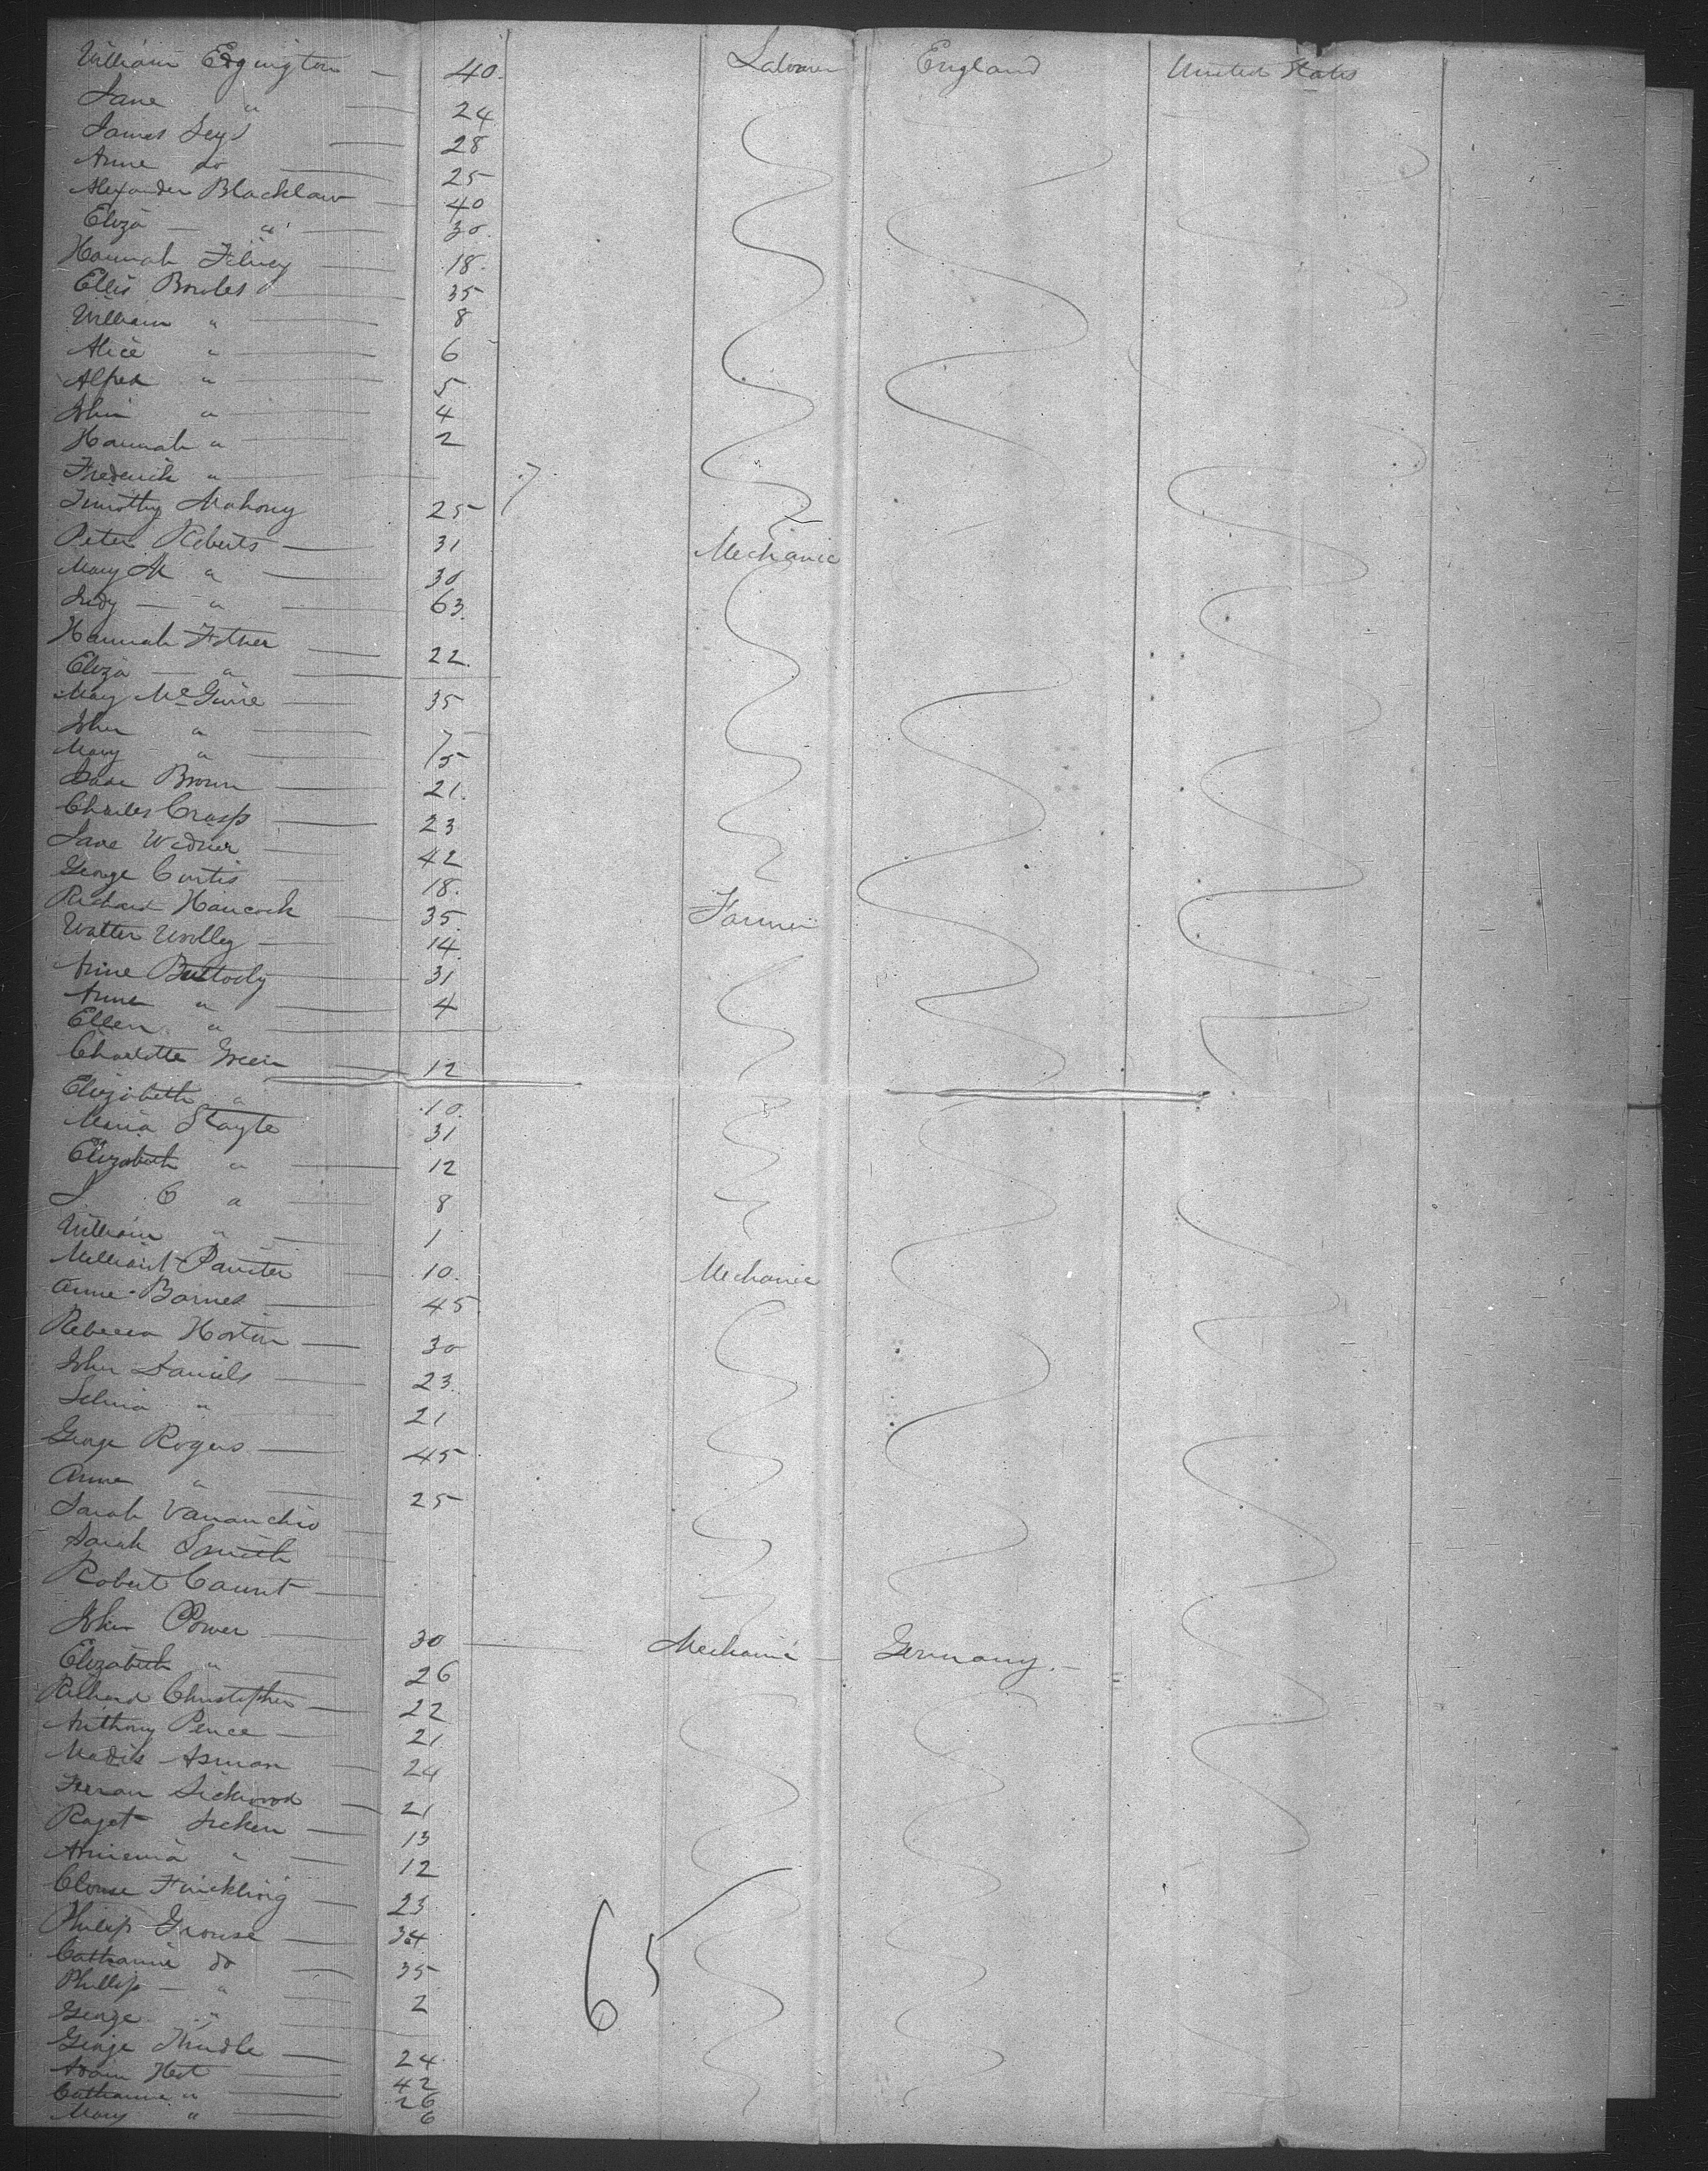 William Edgington — 40. Labourer England United States
Jane " 24
James Seys 28
Anne do 25
Alexander Blacklaw 40
Eliza — " 30.
Hannah 18.
Ellis Bowles 35
William " 8
Alice " 6
Alfred " 5
John " 4
Hannah " 2
Frederick "
Timothy Mahony 25
Peter Roberts — 31 Mechanic
Mary M " 30
Judy — " 63.
Hannah Fother 22.
Eliza — "
Mary McGuire 35
John " 7
Mary " 5
Jane Brown 21.
Charles Crasp 23
Jane Widner 42
George Curtis 18.
Richard Hancock 35. Farmer
Walter Wolley — 14.
Anne 31
Anne " 4
Ellen "
Charlotte Green 12
Elizabeth " 10.
Maria Slayte 31
Elizabeth " 12
J C " 8
William " 1
Painter 10. Mechanic
Anne Barnes 45.
Rebecca Horton — 30
John Daniels 23.
Selina " 21
George Rogers — 45
Anne " 25
Sarah
Sarah Smith
Robert Caunt —
John Power — 30 — Mechanic — Germany. —
Elizabeth " 26
Richard Christopher — 22
Anthony Pence — 21
Asman 24
21
Sicken — 13
" 12
23
Philip Grouse — 34
Catharine do 35
Phillip — " 2
65
George "
George — 24
Adam Hest 42
Catharine " 26
Mary " 6